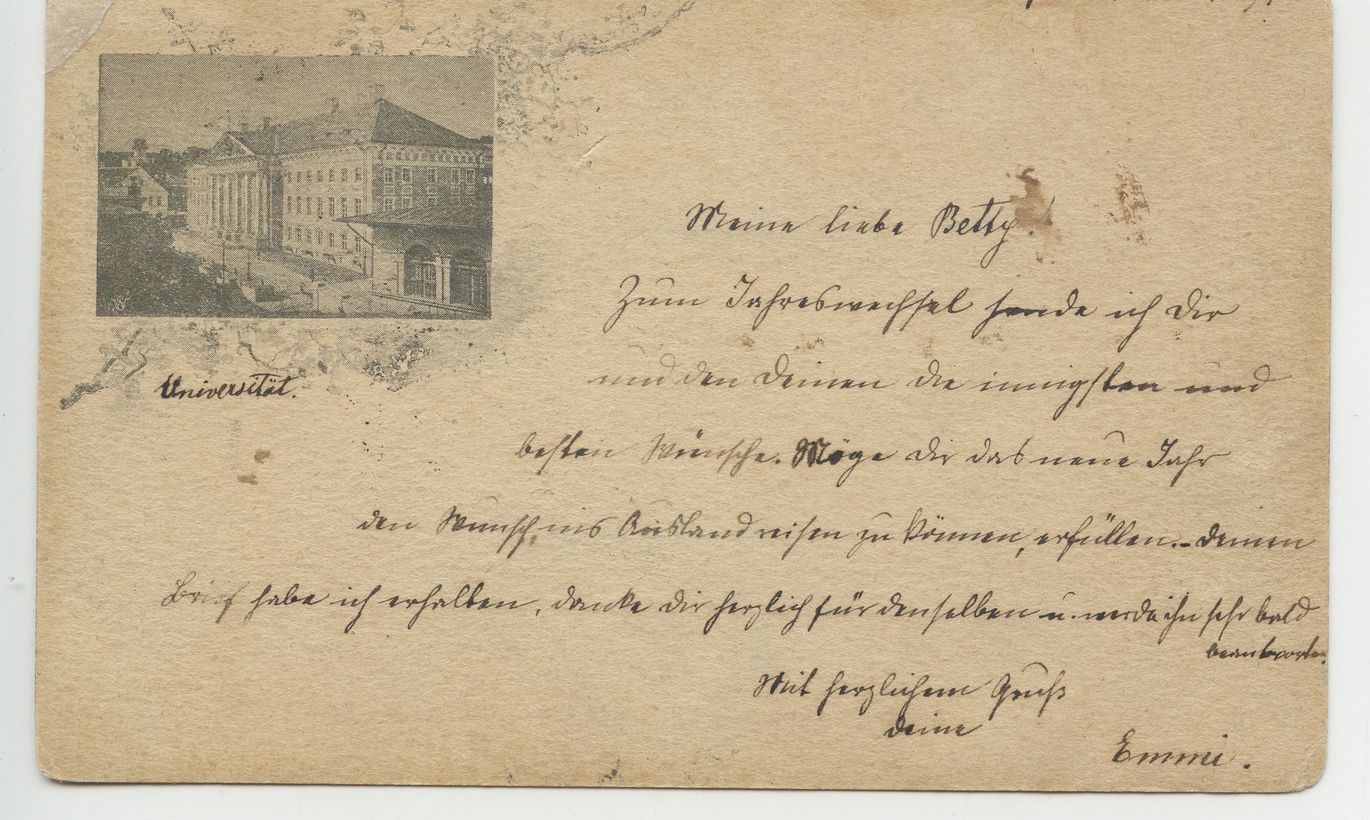 Universität.
Meine liebe Betty!
Zum Jahreswechsel sende ich Dir
und den Deinen die innigsten und
besten Wünsche. Möge Dir das neue Jahr
den Wunsch, ins Ausland reisen zu können, erfüllen. – Deinen
Brief habe ich erhalten, danke Dir herzlich für denselben u. werde ihn sehr bald
beantworten.
Mit herzlichem Gruß
Deine
Emmi.